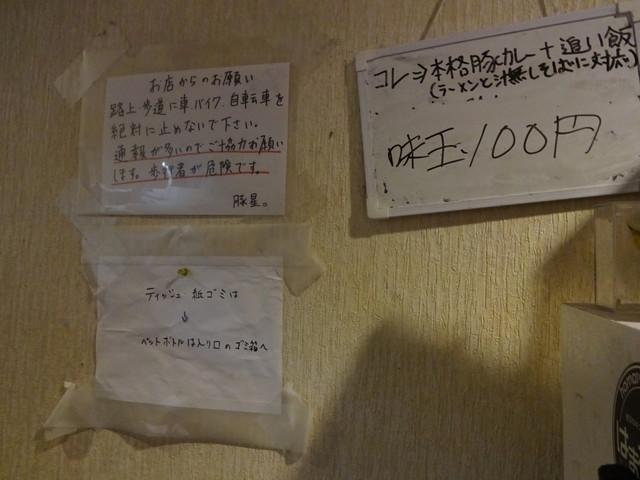 お店からのお願い
路上歩道に車バイク、自転車を
絶対に止めないで下さい。
通報が多いのでご協力お願い
します。歩行者が危険です。
豚星。
コレ⇒本格豚カレー+追い飯
(ラーメンと汁無しそばに対応)
味玉、100円
ティッシュ 紙ゴミは
↓
ペットボトルは入り口のゴミ箱へ